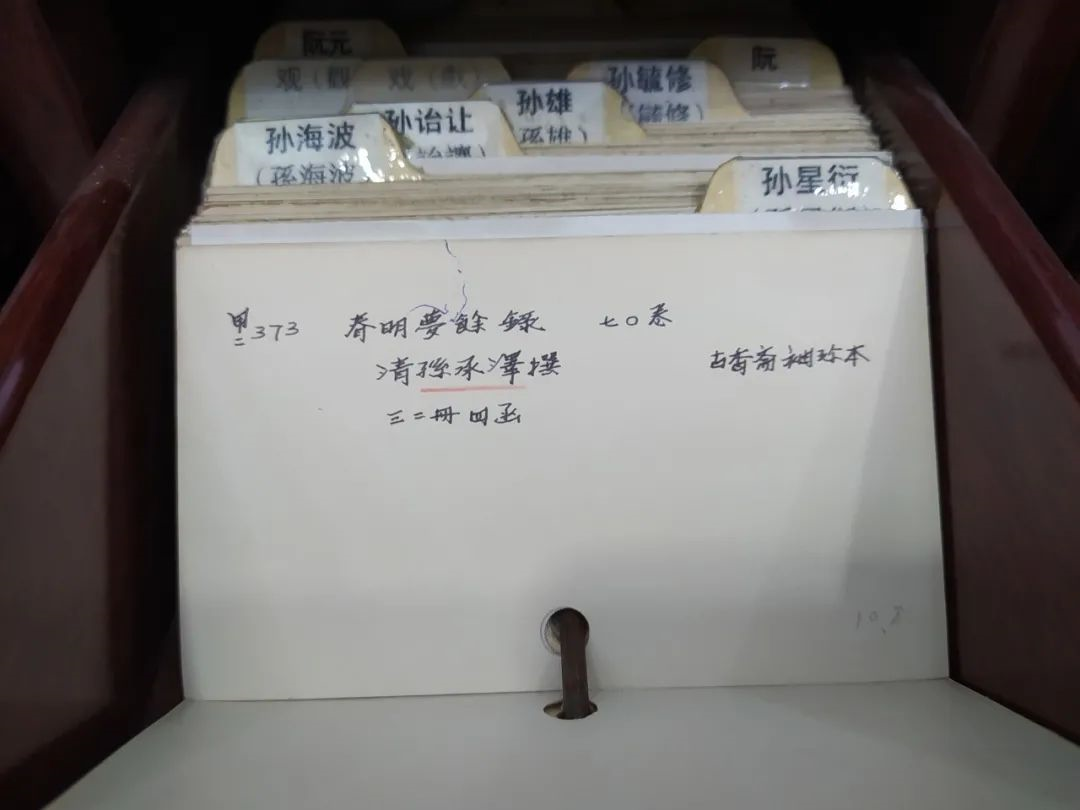 阮元
阮
观（觀
戏（戲）
孙毓修
毓修）
孙雄
（孫雄）
孙诒让
诒讓）
孙海波
（孫海波
孙星衍
甲二373 春明夢餘錄 七〇卷
清孫承澤撰 古香斋袖珍本
三二冊四函
10.8